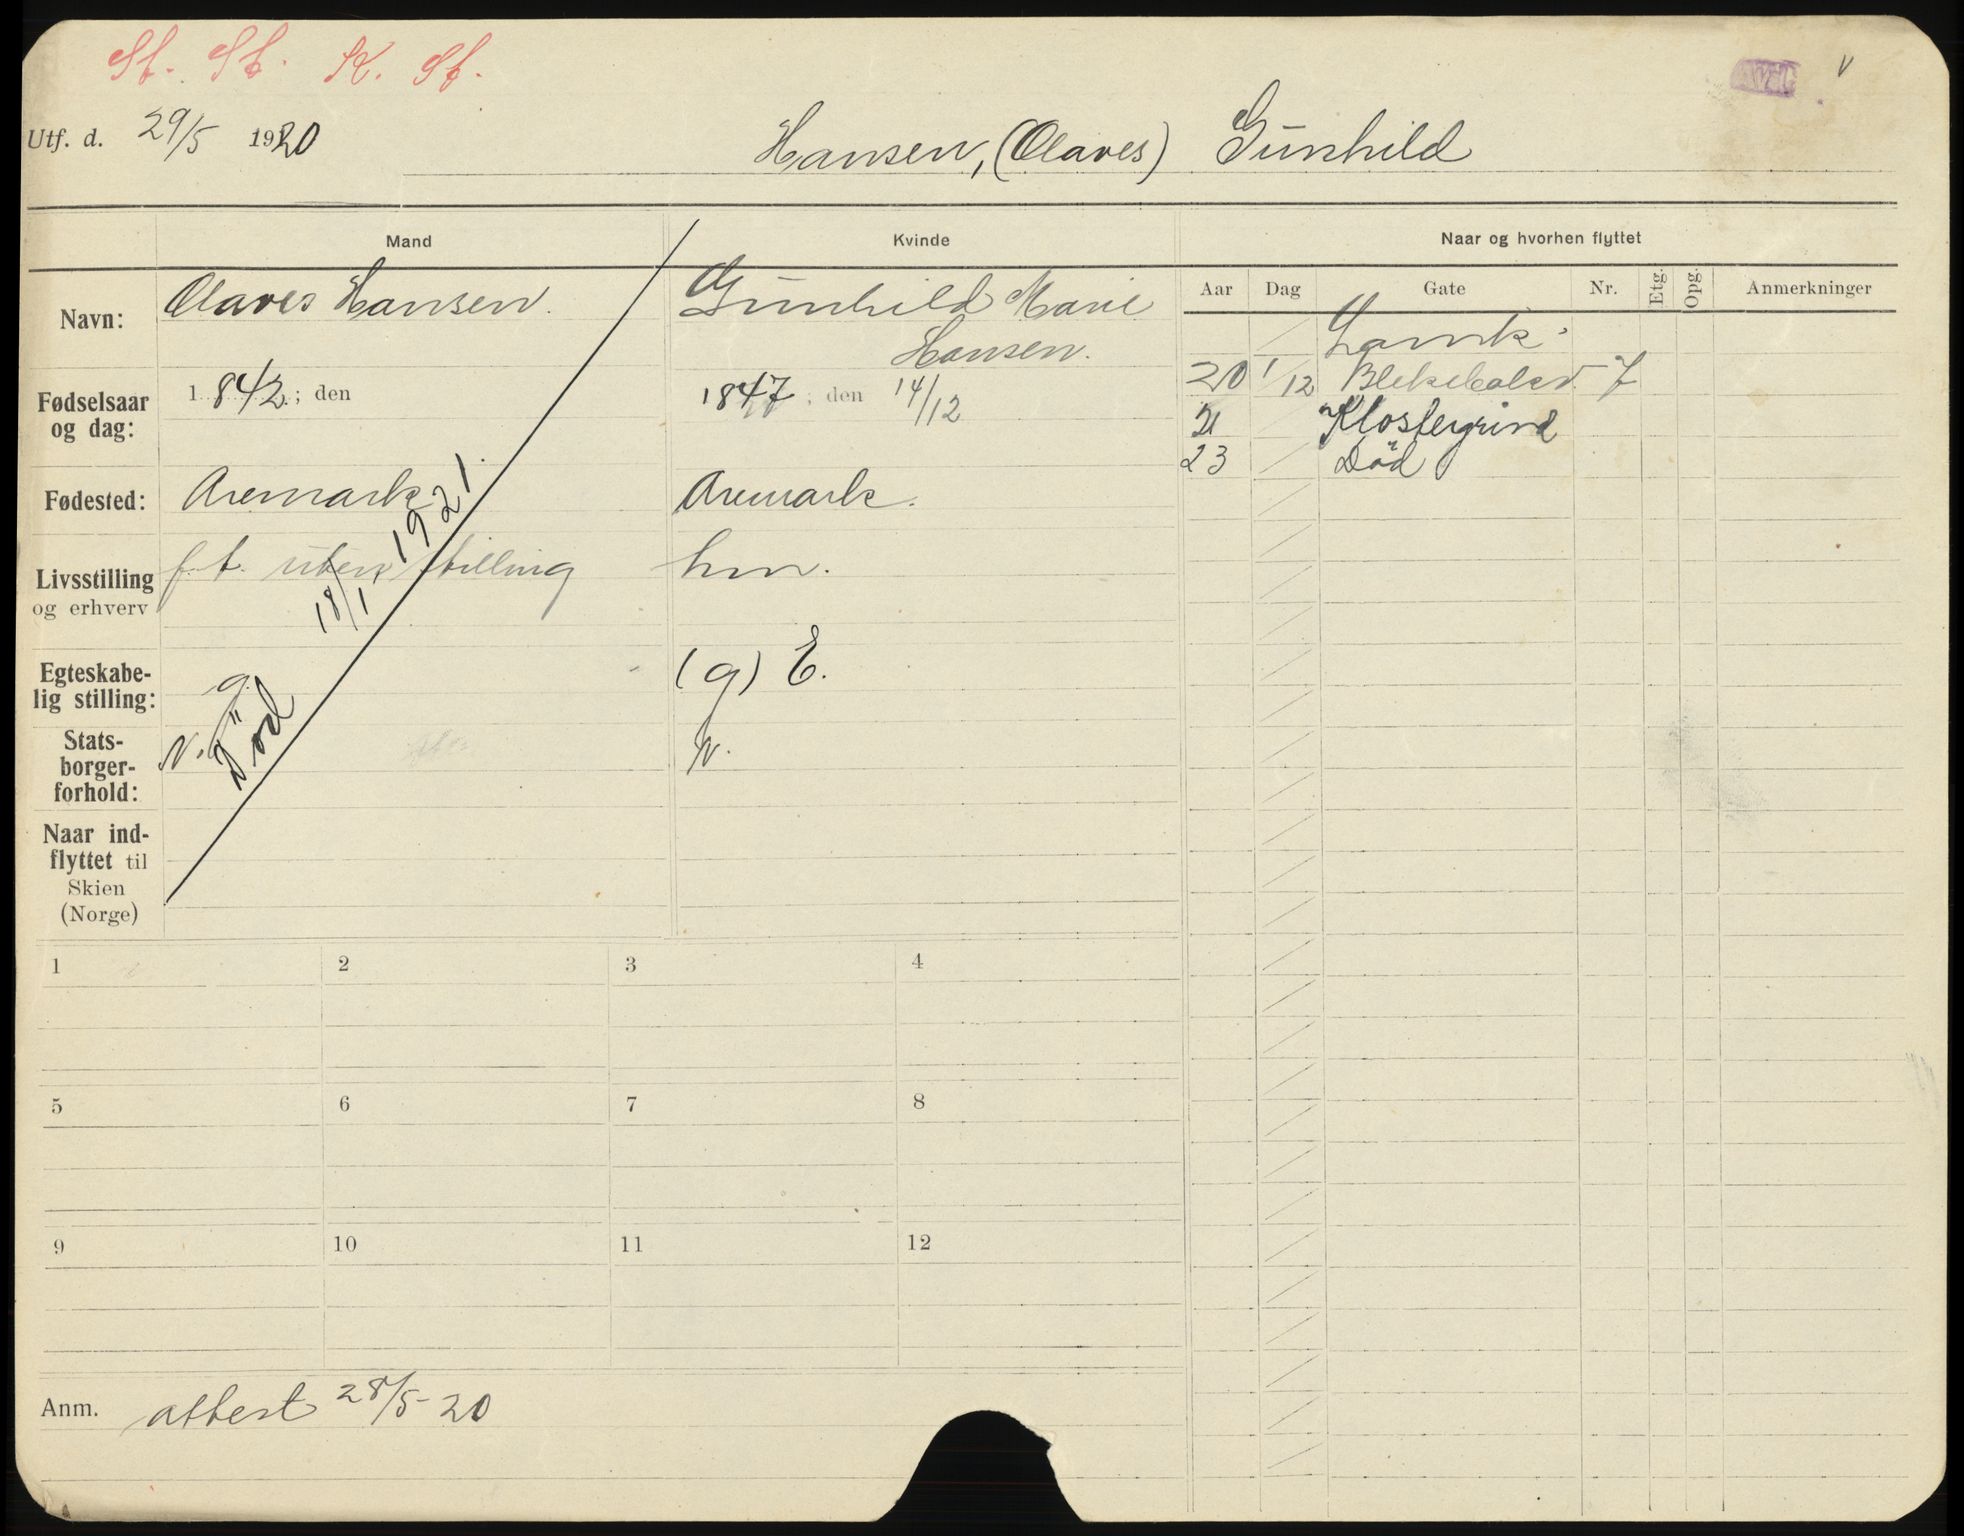 St. St. K. St.
Avd. v
Utf. d. 29/5 1920
Hansen, (Olaves) Gunhild
Mand Kvinde Naar og hvorhen flyttet
Aar Dag Gate Nr. Etg. Opg. Anmerkninger
Navn: Olaves Hansen. Gunhild Marie
Hansen.
Fødselsaar og dag: 1842; den 1847; den 14/12
Fødested: Aremark Aremark.
Livsstilling og erhverv f. t. uten stilling hm.
Egteskabe-
lig stilling: g. (g) E.
Stats-
borger-
forhold: N. N.
Død 18/1 1921.
Naar ind-
flyttet til
Skien
(Norge)
20 1/12 7
21 Klostergrind
23 Död
1 2 3 4
5 6 7 8
9 10 11 12
Anm. attest 28/5-20